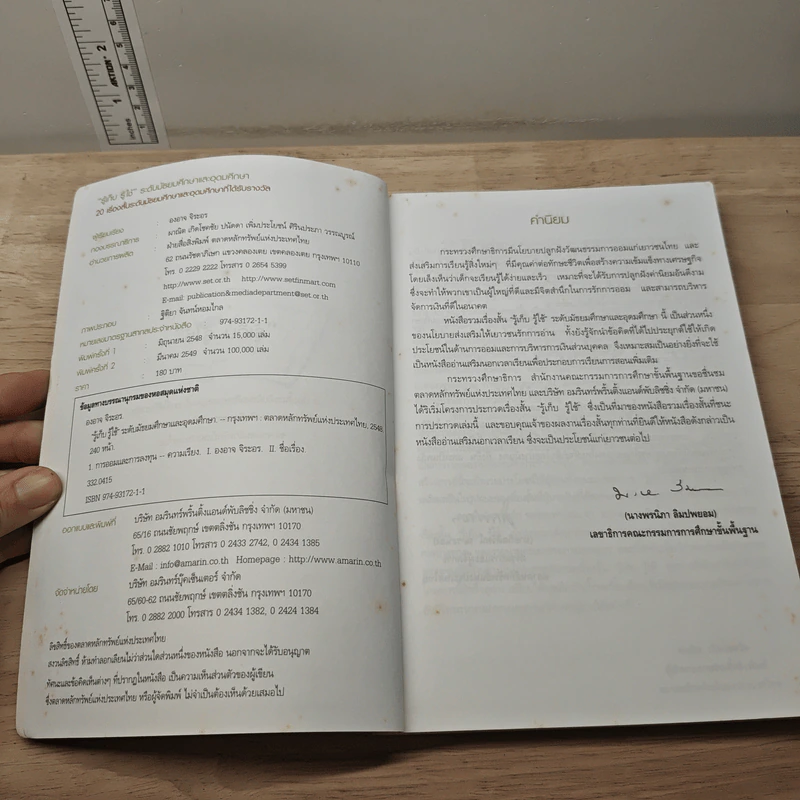 "รู้เก็บ รู้ใช้" ระดับมัธยมศึกษาและอุดมศึกษา
20 เรื่องสั้นระดับมัธยมศึกษาและอุดมศึกษาที่ได้รับรางวัล
ผู้เรียบเรียง : องอาจ จิระอร
กองบรรณาธิการ : ผาณิต เกิดโชคชัย ปนัดดา เพิ่มประโยชน์ ศิรินประภา วรรณบูรณ์
อำนวยการผลิต : ฝ่ายสื่อสิ่งพิมพ์ ตลาดหลักทรัพย์แห่งประเทศไทย
62 ถนนรัชดาภิเษก แขวงคลองเตย เขตคลองเตย กรุงเทพฯ 10110
โทร. 0 2229 2222 โทรสาร 0 2654 5399
http://www.set.or.th http://www.setfinmart.com
E-mail: publication&mediadepartment@set.or.th
ภาพประกอบ : ฐิติยา จันทน์หอมไกล
หมายเลขมาตรฐานสากลประจำหนังสือ 974-93172-1-1
พิมพ์ครั้งที่ 1 : มิถุนายน 2548 จำนวน 15,000 เล่ม
พิมพ์ครั้งที่ 2 : มีนาคม 2549 จำนวน 100,000 เล่ม
ราคา : 180 บาท
ข้อมูลทางบรรณานุกรมของหอสมุดแห่งชาติ
องอาจ จิระอร
"รู้เก็บ รู้ใช้" ระดับมัธยมศึกษาและอุดมศึกษา. -- กรุงเทพฯ : ตลาดหลักทรัพย์แห่งประเทศไทย, 2548.
240 หน้า.
1. การออมและการลงทุน -- ความเรียง. I. องอาจ จิระอร. II. ชื่อเรื่อง.
332.0415
ISBN 974-93172-1-1
ออกแบบและพิมพ์ที่ บริษัท อมรินทร์พริ้นติ้งแอนด์พับลิชชิ่ง จำกัด (มหาชน)
65/16 ถนนชัยพฤกษ์ เขตตลิ่งชัน กรุงเทพฯ 10170
โทร. 0 2882 1010 โทรสาร 0 2433 2742, 0 2434 1385
E-Mail : info@amarin.co.th Homepage : http://www.amarin.co.th
จัดจำหน่ายโดย บริษัท อมรินทร์บุ๊คเซ็นเตอร์ จำกัด
65/60-62 ถนนชัยพฤกษ์ เขตตลิ่งชัน กรุงเทพฯ 10170
โทร. 0 2882 2000 โทรสาร 0 2434 1382, 0 2424 1384
ลิขสิทธิ์ของตลาดหลักทรัพย์แห่งประเทศไทย
สงวนลิขสิทธิ์ ห้ามทำลอกเลียนไม่ว่าส่วนใดส่วนหนึ่งของหนังสือ นอกจากจะได้รับอนุญาต
ทัศนะและข้อคิดเห็นต่างๆ ที่ปรากฏในหนังสือ เป็นความเห็นส่วนตัวของผู้เขียน
ซึ่งตลาดหลักทรัพย์แห่งประเทศไทย หรือผู้จัดพิมพ์ ไม่จำเป็นต้องเห็นด้วยเสมอไป
คำนิยม
กระทรวงศึกษาธิการมีนโยบายปลูกฝังวัฒนธรรมการออมแก่เยาวชนไทย และ
ส่งเสริมการเรียนรู้สิ่งใหม่ๆ ที่มีคุณค่าต่อทักษะชีวิตเพื่อสร้างความเข้มแข็งทางเศรษฐกิจ
โดยเล็งเห็นว่าเด็กจะเรียนรู้ได้ง่ายและเร็ว เหมาะที่จะได้รับการปลูกฝังค่านิยมอันดีงาม
ซึ่งจะทำให้พวกเขาเป็นผู้ใหญ่ที่ดีและมีจิตสำนึกในการรักการออม และสามารถบริหาร
จัดการเงินที่ดีในอนาคต
หนังสือรวมเรื่องสั้น "รู้เก็บ รู้ใช้" ระดับมัธยมศึกษาและอุดมศึกษา นี้ เป็นส่วนหนึ่ง
ของนโยบายส่งเสริมให้เยาวชนรักการอ่าน ทั้งยังรู้จักนำข้อคิดที่ได้ไปประยุกต์ใช้ให้เกิด
ประโยชน์ในด้านการออมและการบริหารการเงินส่วนบุคคล จึงเหมาะสมเป็นอย่างยิ่งที่จะใช้
เป็นหนังสืออ่านเสริมนอกเวลาเรียนเพื่อประกอบการเรียนการสอนเพิ่มเติม
กระทรวงศึกษาธิการ สำนักงานคณะกรรมการการศึกษาขั้นพื้นฐานขอชื่นชม
ตลาดหลักทรัพย์แห่งประเทศไทย และบริษัท อมรินทร์พริ้นติ้งแอนด์พับลิชชิ่ง จำกัด (มหาชน)
ได้ริเริ่มโครงการประกวดเรื่องสั้น "รู้เก็บ รู้ใช้" ซึ่งเป็นที่มาของหนังสือรวมเรื่องสั้นที่ชนะ
การประกวดเล่มนี้ และขอบคุณเจ้าของผลงานเรื่องสั้นทุกท่านที่ยินดีให้หนังสือดังกล่าวเป็น
หนังสืออ่านเสริมนอกเวลาเรียน ซึ่งจะเป็นประโยชน์แก่เยาวชนต่อไป
(นางพรนิภา ลิมปพยอม)
เลขาธิการคณะกรรมการการศึกษาขั้นพื้นฐาน